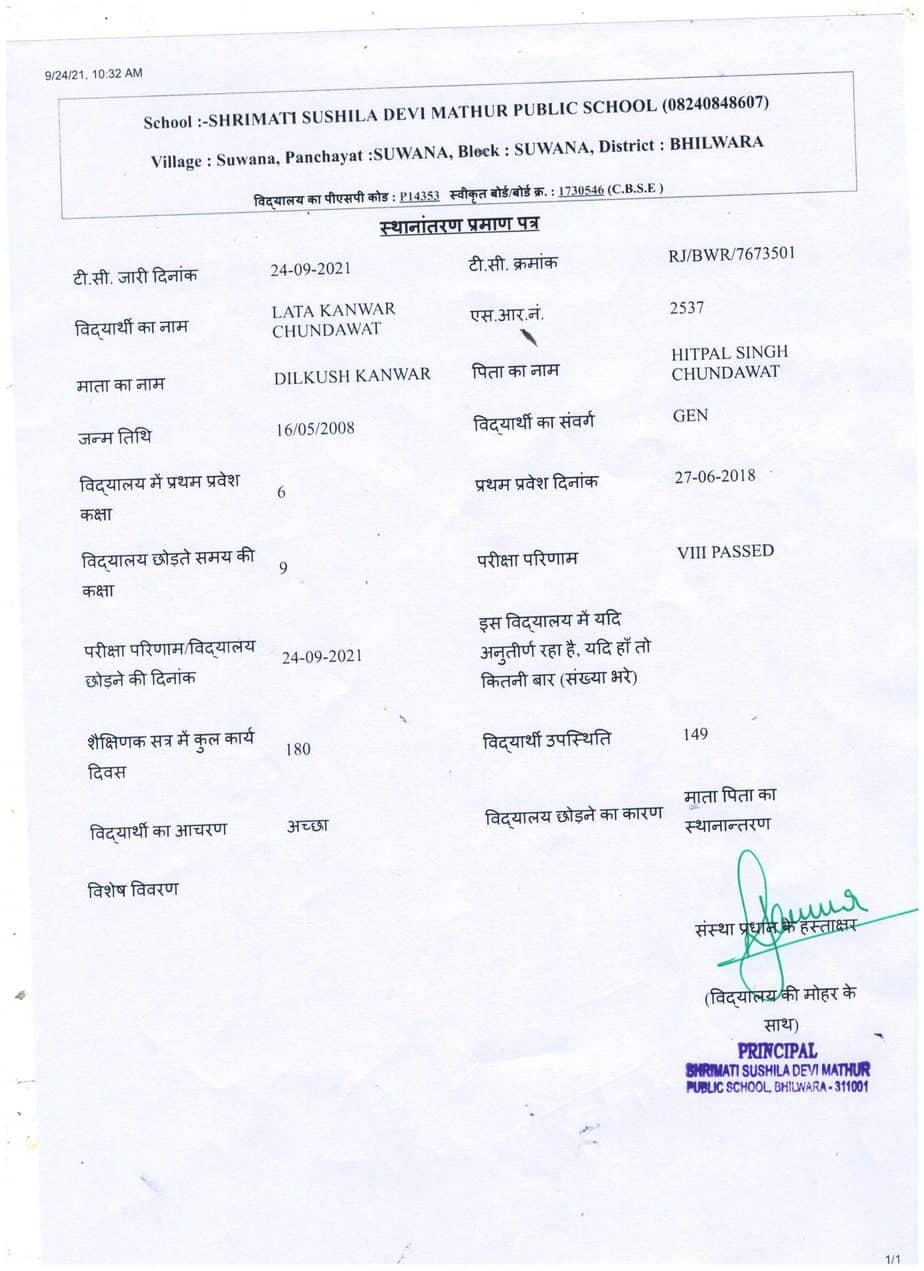 9/24/21, 10:32 AM
School :-SHRIMATI SUSHILA DEVI MATHUR PUBLIC SCHOOL (08240848607)
Village : Suwana, Panchayat :SUWANA, Block : SUWANA, District : BHILWARA
विद्यालय का पीएसपी कोड : P14353 स्वीकृत बोर्ड/बोर्ड क्र. : 1730546 (C.B.S.E )
स्थानांतरण प्रमाण पत्र
टी.सी. जारी दिनांक 24-09-2021 टी.सी. क्रमांक RJ/BWR/7673501
विद्यार्थी का नाम LATA KANWAR
CHUNDAWAT
एस.आर.नं. 2537
माता का नाम DILKUSH KANWAR पिता का नाम HITPAL SINGH
CHUNDAWAT
जन्म तिथि 16/05/2008 विद्यार्थी का संवर्ग GEN
विद्यालय में प्रथम प्रवेश
कक्षा
6
प्रथम प्रवेश दिनांक 27-06-2018
विद्यालय छोड़ते समय की
कक्षा
9
परीक्षा परिणाम VIII PASSED
परीक्षा परिणाम/विद्यालय
छोड़ने की दिनांक
24-09-2021
इस विद्यालय में यदि
अनुतीर्ण रहा है, यदि हाँ तो
कितनी बार (संख्या भरे)
शैक्षिणक सत्र में कुल कार्य
दिवस
180
विद्यार्थी उपस्थिति 149
विद्यार्थी का आचरण अच्छा विद्यालय छोड़ने का कारण माता पिता का
स्थानान्तरण
विशेष विवरण
संस्था प्रधान के हस्ताक्षर
(विद्यालय की मोहर के
साथ)
PRINCIPAL
SHRIMATI SUSHILA DEVI MATHUR
PUBLIC SCHOOL, BHILWARA - 311001
1/1